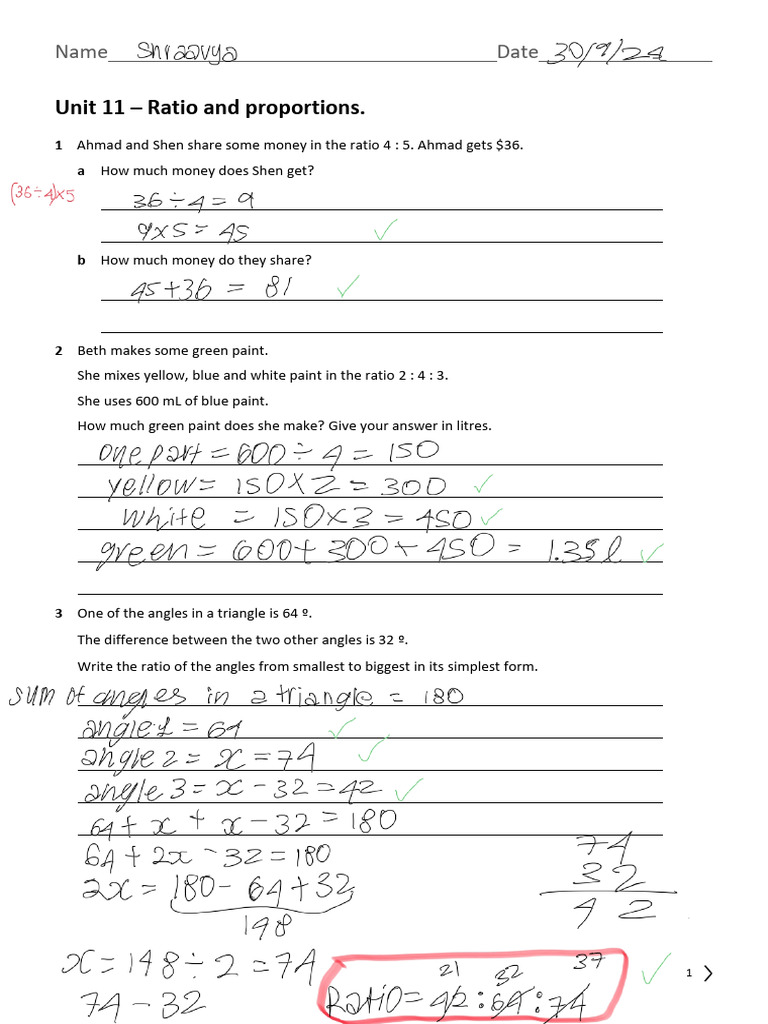 Name Shraavya Date 30/9/24
Unit 11 – Ratio and proportions.
1 Ahmad and Shen share some money in the ratio 4 : 5. Ahmad gets $36.
a How much money does Shen get?
(36÷4)×5
36÷4=9
9×5=45
b How much money do they share?
45+36 = 81
2 Beth makes some green paint.
She mixes yellow, blue and white paint in the ratio 2 : 4 : 3.
She uses 600 mL of blue paint.
How much green paint does she make? Give your answer in litres.
one part = 600 ÷ 4 = 150
yellow = 150 × 2 = 300
white = 150×3 = 450
green = 600 + 300 + 450 = 1.35l
3 One of the angles in a triangle is 64 º.
The difference between the two other angles is 32 º.
Write the ratio of the angles from smallest to biggest in its simplest form.
sum of angles in a triangle = 180
angle 1 = 64
angle 2 = x = 74
angle 3 = x - 32 = 42
64 + x + x - 32 = 180
64 + 2x - 32 = 180
2x = 180 - 64 + 32
148
74
32
42
x = 148 ÷ 2 = 74
74 - 32
21 32 37
Ratio = 42 : 64 : 74
1